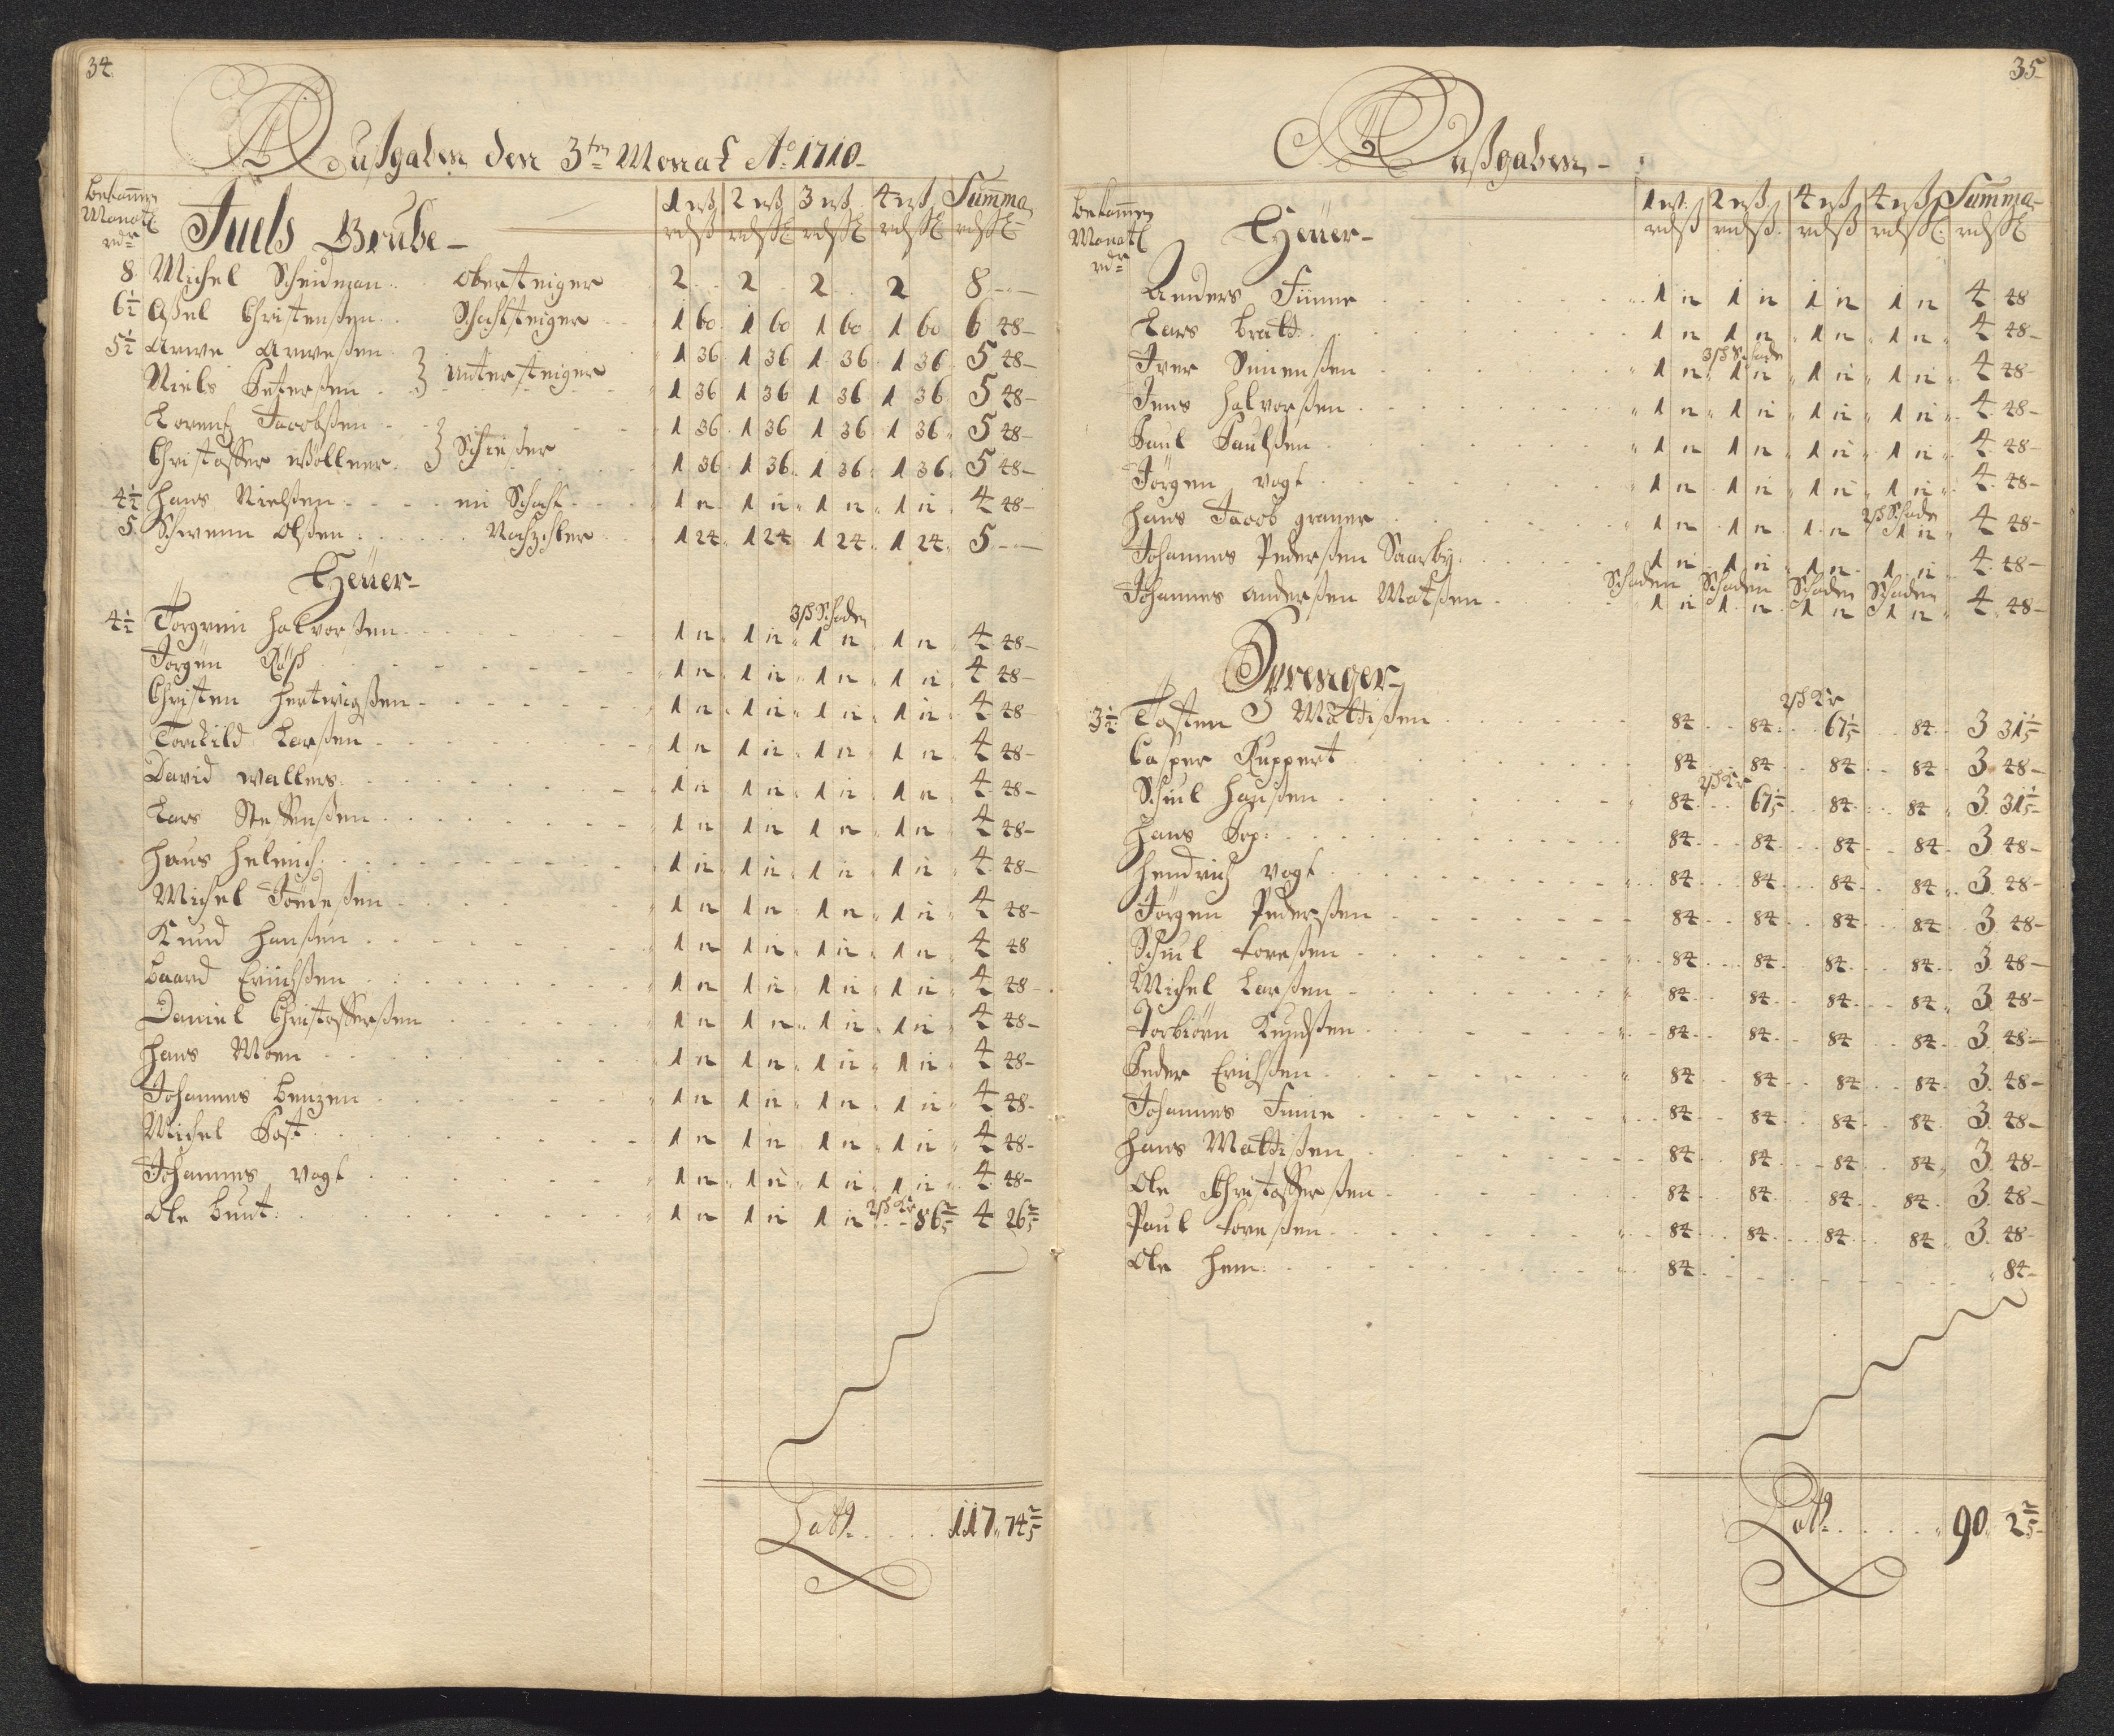 34.
Außgaben den 3ten Monat Ao. 1710
Bekommen Monatl. rdr
Juels Grube
1 wß 2 wß 3 wß 4 wß Summa
rdß rdß rdß rdß rdß
8 Michel Scheidman Obersteiger 2 2 2 2 8
6 1/2 Axel Christenßen Schachtsteiger 1 60 1 60 1 60 1 60 6 48
5 1/2 Arwe Arweßen 1 36 1 36 1 36 1 36 5 48
Niels Peterßen } Untersteiger 1 36 1 36 1 36 1 36 5 48
Lorentz Jacobßen 1 36 1 36 1 36 1 36 5 48
Christoffer Wöllner } Schießer 1 36 1 36 1 36 1 36 5 48
4 1/2 Hans Nielßen im Schacht 1 12 1 12 1 12 1 12 4 48
5 Schwenn Olßen Nachzehler 1 24 1 24 1 24 1 24 5
Heüer
3 ß Schaden
4 1/2 Torgrim Halvorßen 1 12 1 12 1 12 1 12 4 48
Jorgen Räß 1 12 1 12 1 12 1 12 4 48
Christen Hertwigßen 1 12 1 12 1 12 1 12 4 48
Torckild Larßen 1 12 1 12 1 12 1 12 4 48
David Wallers 1 12 1 12 1 12 1 12 4 48
Lars Steffenßen 1 12 1 12 1 12 1 12 4 48
Hans Helmich 1 12 1 12 1 12 1 12 4 48
Michel 1 12 1 12 1 12 1 12 4 48
Knud Hanßen 1 12 1 12 1 12 1 12 4 48
Baard Erichßen 1 12 1 12 1 12 1 12 4 48
Daniel Christofferßen 1 12 1 12 1 12 1 12 4 48
Hans Moen 1 12 1 12 1 12 1 12 4 48
Johannes Benzen 1 12 1 12 1 12 1 12 4 48
Michel Post 1 12 1 12 1 12 1 12 4 48
Johannes Vogt 1 12 1 12 1 12 1 12 4 48
2 ß Kr
Ole Bunt 1 12 1 12 1 12 86 2/5 4 26 2/5
Latt. 117 74 2/5
35
Außgaben
Bekommen Monatl. rdr
Heüer
1 wß 2 wß 4 wß 4 wß Summa
rdß rdß rdß rdß rdß
Anders Finne 1 12 1 12 1 12 1 12 4 48
Lars Bratt 1 12 1 12 1 12 1 12 4 48
3 ß Schade
Iver Simenßen 1 12 1 12 1 12 1 12 4 48
Jens Halvorßen 1 12 1 12 1 12 1 12 4 48
Paul Paulßen 1 12 1 12 1 12 1 12 4 48
Jörgen Vogt 1 12 1 12 1 12 1 12 4 48
2 ß Schade
Hans Jacob Graner 1 12 1 12 1 12 1 12 4 48
Johannes Pederßen Saarby 1 12 1 12 1 12 1 12 4 48
Schaden Schaden Schaden Schaden
Johannes Anderßen Matßen 1 12 1 12 1 12 1 12 4 48
Sprenger
2 ß Kr
3 1/2 Tosten Mathißen 84 84 67 1/5 84 3 31 1/5
Casper Ruppert 84 84 84 84 3 48
2 ß Kr
Schiul Hanßen 84 67 1/5 84 84 3 31 1/5
Hans 84 84 84 84 3 48
Hendrich Vogt 84 84 84 84 3 48
Jörgen Pederßen 84 84 84 84 3 48
Schiul Toreßen 84 84 84 84 3 48
Michel Larßen 84 84 84 84 3 48
Torbiörn Knudßen 84 84 84 84 3 48
Peder Erichßen 84 84 84 84 3 48
Johannes Finne 84 84 84 84 3 48
Hans Mathißen 84 84 84 84 3 48
Ole Christofferßen 84 84 84 84 3 48
Paul Toreßen 84 84 84 84 3 48
Ole Hem 84 84
Latt. 90 2 2/5